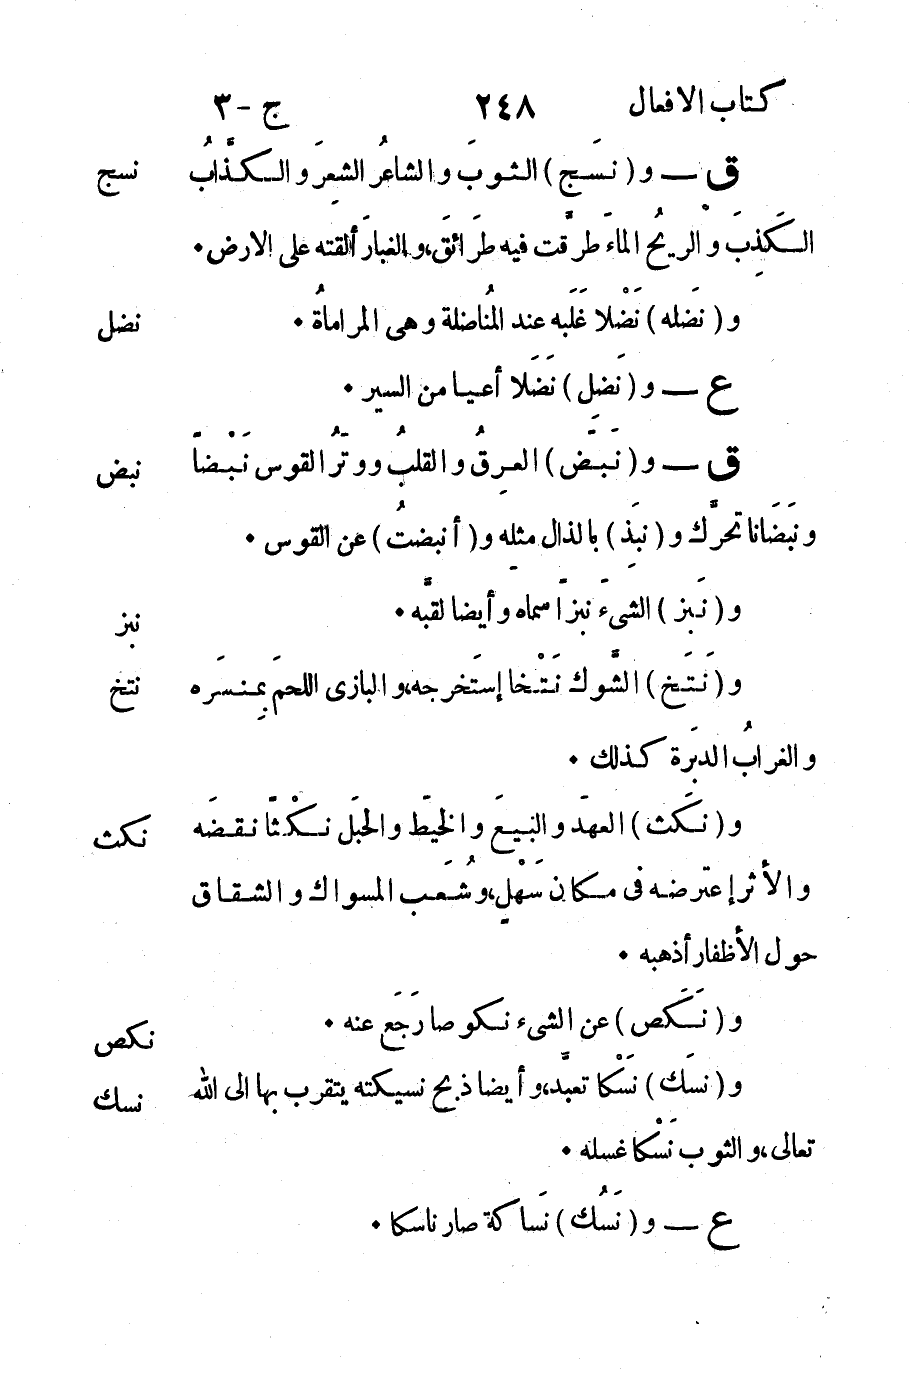 كتاب الافعال ٢٤٨ ج - ٣
ق — و ( نَسَج ) الثوبَ والشاعرُ الشعرَ والكذّابُ نسج
الكَذِبَ والريحُ الماءَ طرّقت فيه طرَائقَ، والغبارَ ألقته على الارض ٠
و ( نَضله ) نَضْلا غَلَبه عند المُناضلة وهى المراماةُ ٠ نضل
ع — و ( نَضِل ) نَضَلا أعيا من السير ٠
ق — و ( نَبَض ) العِرقُ والقلبُ ووترُ القوس نَبْضاً نبض
ونَبَضَانا تحرَّك و ( نَبَذ ) بالذال مثله و ( أنبضتُ ) عن القوس ٠
و ( نَبَز ) الشىءَ نبزاً سماه وأيضا لقبَّه ٠ نبز
و ( نَتَخ ) الشَّوك نَتْخا إستَخرجه، والبازى اللحمَ بمِنسَره نتخ
والغرابُ الدبَرة كذلك ٠
و ( نَكَث ) العهدَ والبَيعَ والخيَط والحبَل نكْثاً نقضَه نكث
والأثر إعترضه فى مكان سَهْلٍ، وشُعَب المسواك والشقاق
حول الأظفار أذهبه ٠
و ( نَكَص ) عن الشىء نكوصا رَجَع عنه ٠ نكص
و ( نسَك ) نَسْكا تعبَّد، وأيضا ذبح نسيكته يتقرب بها الى الله نسك
تعالى، والثوب نَسْكا غسله ٠
ع — و ( نَسُك ) نَساكة صار ناسكا ٠